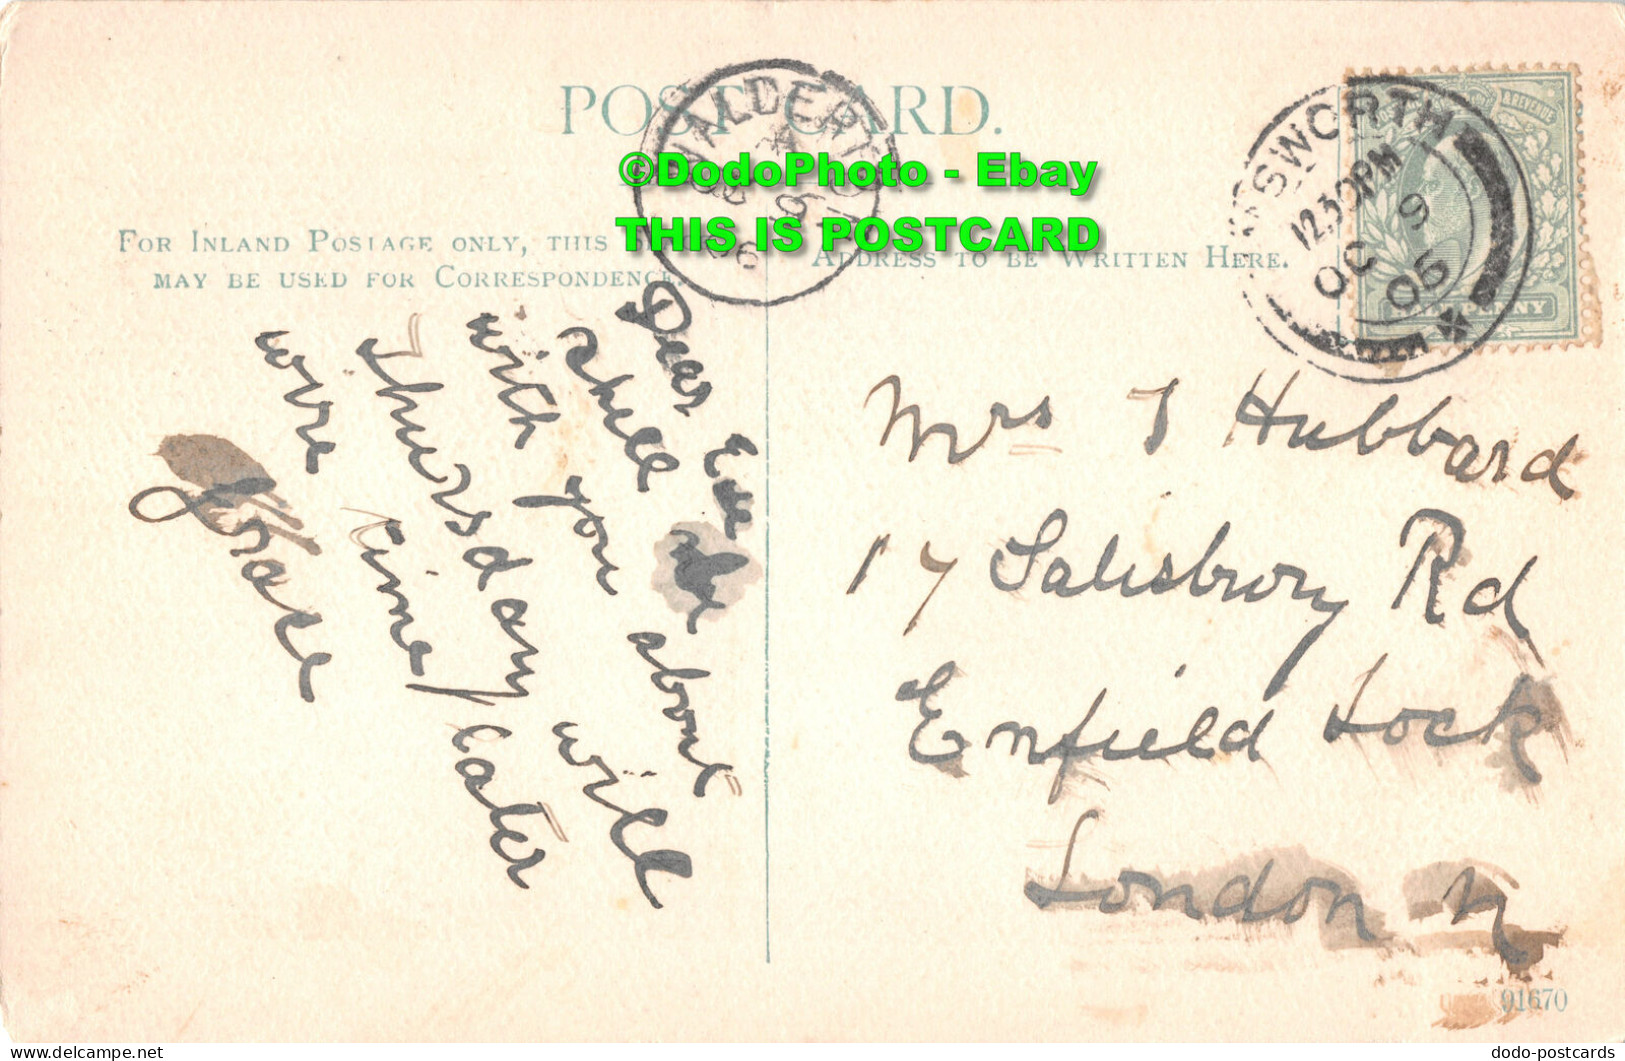 POST CARD.
WALDERTO
OC 9
06
©DodoPhoto - Ebay
THIS IS POSTCARD
SWORTH
12.30PM
OC 9
06
FOR INLAND POSTAGE ONLY, THIS
MAY BE USED FOR CORRESPONDENCE.
ADDRESS TO BE WRITTEN HERE.
Dear
shall be about
with you will
Thursday
wire time/later
Grace
Mrs J Hubbard
17 Salisbury Rd
Enfield Lock
London N
91670
dodo-postcards